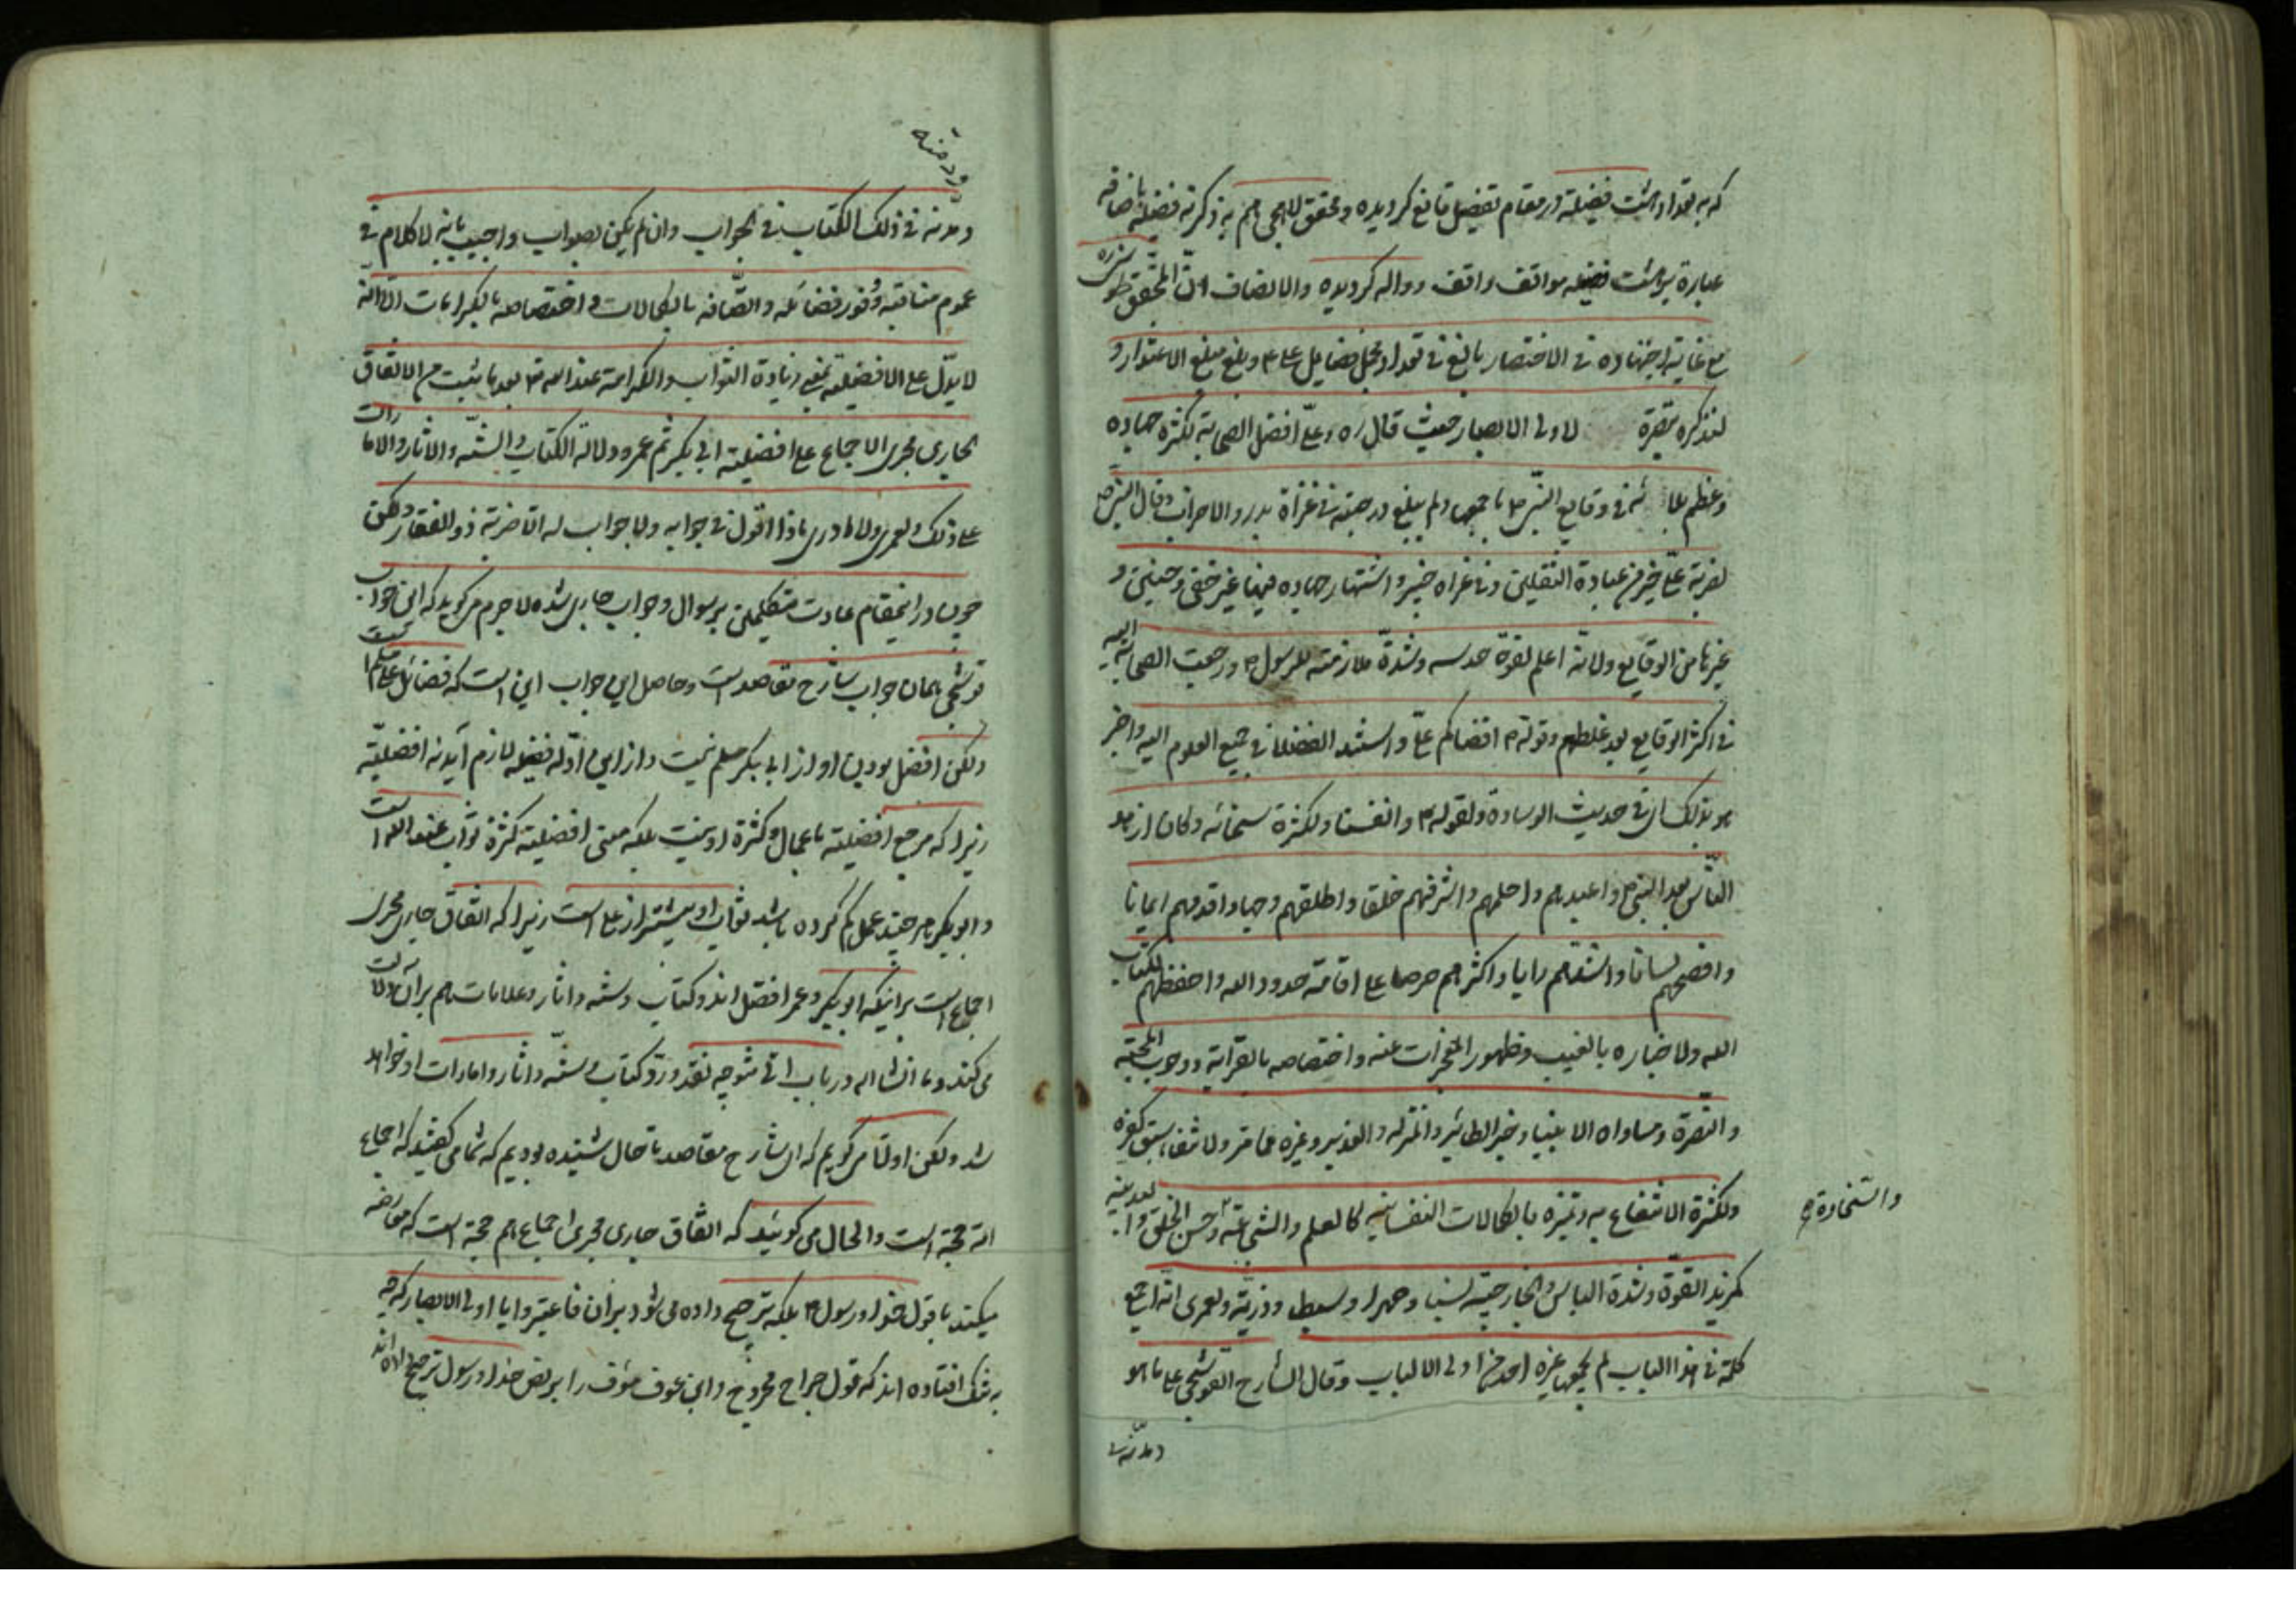 که به تعداد هشت فضیلة در مقام تفضیل قانع کردیده و محقق لاهجی هم به ذکر نه فضیلة باضافه
عبارة بر هشت فضیله مواقف واقف و واله کردیده والانصاف ان المحقق طوسی ره
مع غایة اجتهاده فی الاختصار بالغ فی تعداد مجمل فضایل علی ع و بلغ مبلغ الاعتذار و
لنذکره تبصرة لاولی الابصار حیث قال ره وعلی افضل الصحابة لکثرة جهاده
وعظم بلائه فی وقایع النبی ص باجمعها ولم یبلغ درجته فی غزاة بدر والاحزاب وقال النبی ص
لضربة علی خیر من عبادة الثقلین وفی غزاه خیبر واشتهار جهاده فیها غیر خفی وحنین و
غیرها من الوقایع ولانه اعلم لقوة حدسه وشدة ملازمته للرسول ص ورجعت الصحابة الیه
فی اکثر الوقایع بعد غلطهم وقوله ص اقضاکم علی واستند الفضلا فی جمیع العلوم الیه واخبر
هو بذلک ای فی حدیث الوسادة ولقوله تع وانفسنا ولکثرة سخائه وکان ازهد
الناس بعد النبی ص واعبدهم واحلمهم واشرفهم خلقا واطلقهم وجها واقدمهم ایمانا
وافصحهم لسانا واسدهم رایا واکثرهم حرصا علی اقامة حدود الله واحفظهم لکتاب
الله ولاخباره بالغیب وظهور المعجزات عنه واختصاصه بالقرابة ووجوب المحبة
والنصرة ومساواه الانبیا وخبر الطائر والمنزله والغدیر وغیره مما مر ولانتفاء سبق کفره
ولکثرة الانتفاع به وتمیزه بالکمالات النفسانیه کالعلم والشجاعة وحسن الخلق والبدنیه
والسخاوة صح
کمزید القوة وشدة الباس والخارجیة نسبا وصهرا وسبطا وذریة ولعمری انه اجمع
کلمة فی هذا الباب لم یجمعها غیره احد من اولی الالباب وقال الشارح القوشجی علی ما هو
دیدنه فی
دیدنه فی ذلک الکتاب فی الجواب وان لم یکن بصواب واجیب بانه لا کلام فی
عموم مناقبه ووفور فضائله واتصافه بالکمالات واختصاصه بالکرامات الا انه
لا یدل علی الافضلیة بمعنی زیادة الثواب والکرامة عند الله تع بعد ما ثبت من الاتفاق
الجاری مجری الاجماع علی افضلیة ابی بکر ثم عمر ودلالة الکتاب والسنه والاثار والامارات
علی ذلک ولعمری ولا ادری ماذا اقول فی جوابه ولا جواب له الا ضربة ذو الفقار ولکن
چون در اینمقام عادت متکلمین بر سوال و جواب جاری شده لا جرم می کوید که این جواب
قوشجی همان جواب شارح مقاصد است و حاصل این جواب این است که فضائل علی مسلم است
ولکن افضل بودن او از ابی بکر مسلم نیست و از این ادله فضیله لازم آید نه افضلیة
زیرا که مرجع افضلیة باعمال و کثرة او نیست بلکه معنی افضلیة کثرة ثواب عند الله است
و ابو بکر هر چند عمل کم کرده باشد ثواب او بیشتر از علی است زیرا که اتفاق جاری مجرای
اجماع است بر اینکه ابو بکر و عمر افضل اند و کتاب و سنه و اثار و علامات هم بر آن دلالت
می کند و ما انشا الله در باب اتی متوجه نقد و رد کتاب و سنه و اثار و امارات او خواهد
شد ولکن اولا می کویم که ای شارح مقاصد تا حال شنیده بودیم که شما می کفتید که اجماع
امة حجة است والحال می کوئید که اتفاق جاری مجرای اجماع هم حجة است که معارضه
میکند با قول خدا و رسول ص بلکه ترجیح داده می شود بر ان فاعتبروا یا اولی الابصار که چه
به شک افتاده اند که قول جراح مجروح و ابن عوف مؤف را بر نص خدا و رسول ترجیح داده اند